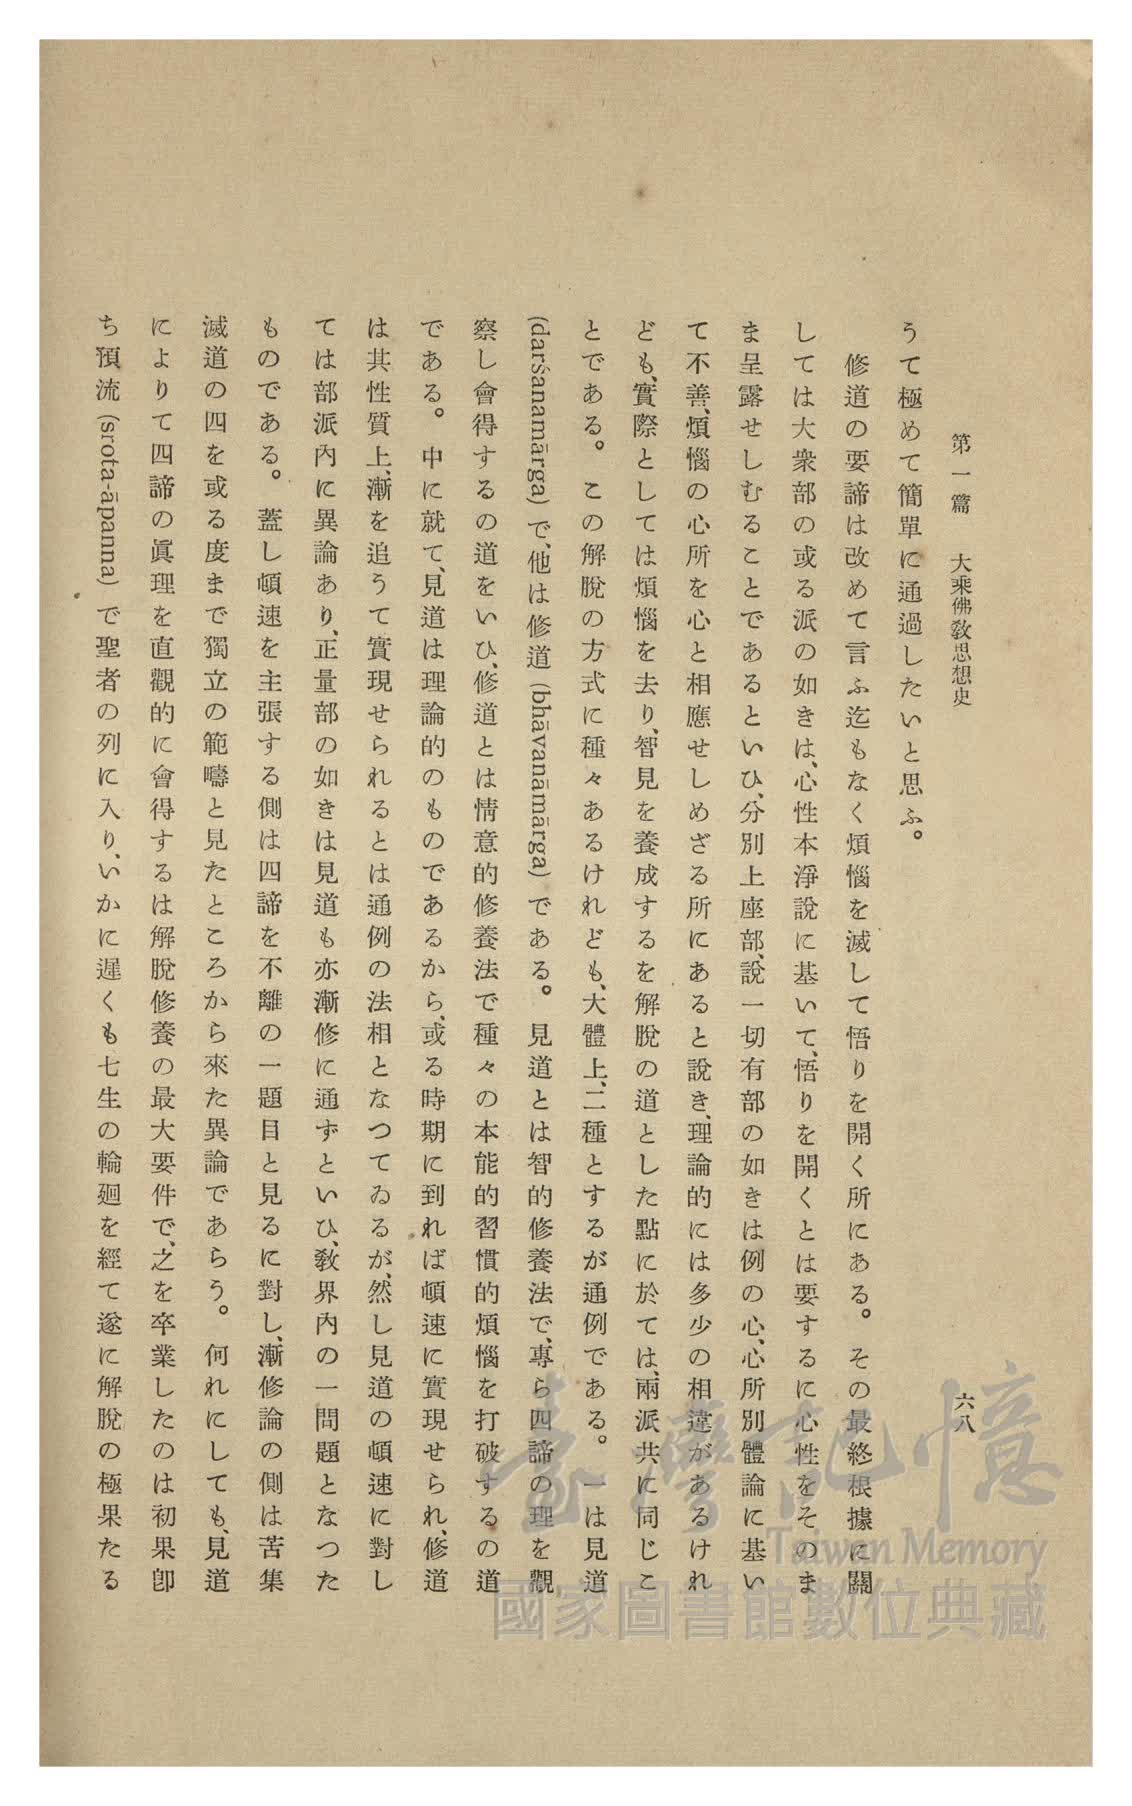 第一篇　大乘佛敎思想史
六八
うて極めて簡單に通過したいと思ふ。
修道の要諦は改めて言ふ迄もなく煩惱を滅して悟りを開く所にある。その最終根據に關
しては大衆部の或る派の如きは、心性本淨說に基いて、悟りを開くとは要するに心性をそのま
ま呈露せしむることであるといひ、分別上座部、說一切有部の如きは例の心、心所別體論に基い
て不善、煩惱の心所を心と相應せしめざる所にあると說き、理論的には多少の相違があるけれ
ども、實際としては煩惱を去り、智見を養成するを解脫の道とした點に於ては、兩派共に同じこ
とである。この解脫の方式に種々あるけれども、大體上、二種とするが通例である。一は見道
(darśanamārga) で、他は修道 (bhāvanāmārga) である。見道とは智的修養法で、專ら四諦の理を觀
察し會得するの道をいひ、修道とは情意的修養法で種々の本能的習慣的煩惱を打破するの道
である。中に就て、見道は理論的のものであるから、或る時期に到れば頓速に實現せられ、修道
は其性質上、漸を追うて實現せられるとは通例の法相となつてゐるが、然し見道の頓速に對し
ては部派內に異論あり、正量部の如きは見道も亦漸修に通ずといひ、敎界內の一問題となつた
ものである。蓋し頓速を主張する側は四諦を不離の一題目と見るに對し、漸修論の側は苦集
滅道の四を或る度まで獨立の範疇と見たところから來た異論であらう。何れにしても、見道
によりて四諦の眞理を直觀的に會得するは解脫修養の最大要件で、之を卒業したのは初果卽
ち預流 (srota-āpanna) で聖者の列に入り、いかに遲くも七生の輪廻を經て遂に解脫の極果たる
臺灣記憶
Taiwan Memory
國家圖書館數位典藏